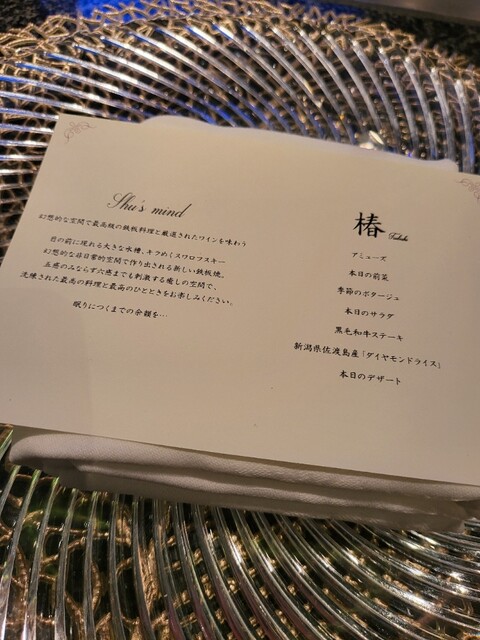 Shu's mind
幻想的な空間で最高級の鉄板料理と厳選されたワインを味わう
目の前に現れる大きな水槽、キラめくスワロフスキー
幻想的な非日常的空間で作り出される新しい鉄板焼。
五感のみならず六感までも刺激する癒しの空間で、
洗練された最高の料理と最高のひとときをお楽しみください。
眠りにつくまでの余韻を…
椿 Tsubaki
アミューズ
本日の前菜
季節のポタージュ
本日のサラダ
黒毛和牛ステーキ
新潟県佐渡島産「ダイヤモンドライス」
本日のデザート